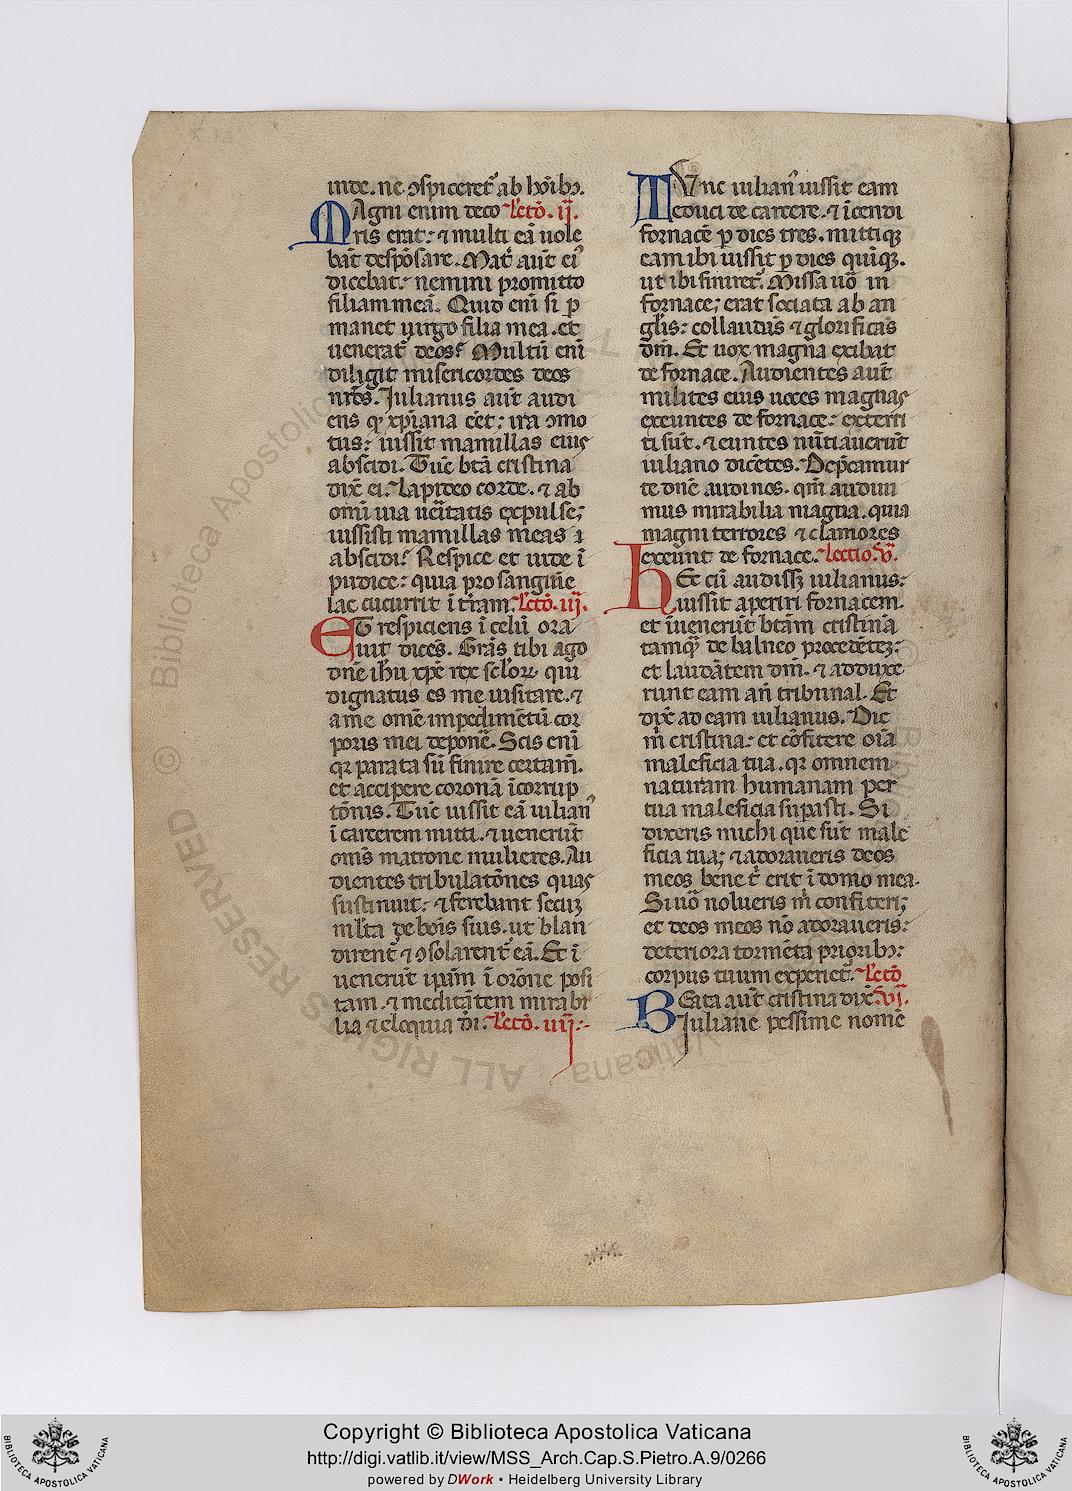 inde. ne ↄspiceret᷑ ab hoı̄ibꝫ.
Agni enim deco Lectō. ij.
M ris erat: ⁊ multi eā uole
bāt despōsare. Mat᷑ aut̄ ei᷒
dicebat: nemini promitto
filiam meā. Quid eni̅ si ꝑ
manet uirgo filia mea. et
uenerat᷑ deos? Multū eni̅
diligit misericordes deos
nr̄os. Iulianus aut̄ audi
ens qꝛ xp̄iana eēt: ira ↄmo
tus: iussit mamillas eius
abscidi. Tūc bt̄a cristina
dix̄ ei. Lapideo corde. ⁊ ab
omı̄ uia ueı̄tatis expulse;
iussisti mamillas meas ı
abscidi? Respice et uide ī
pudice: quia pro sanguı̄e
lac cucurrit ī t̄ram. Lectō. iij.
ET respiciens ī celū ora
uit dicēs. Grās tibi ago
dn̄e ih̄u xp̄e rex sc̄loꝝ qui
dignatus es me uisitare. ⁊
a me omē impedimētū cor
poris mei deponē. Scis eni̅
qꝛ parata sū finire certam̄.
et accipere coronā īcorrup
tōnis. Tūc iussit eā iulian᷒
ī carcerem mitti. ⁊ uenerūt
om̄s matrone mulieres. Au
dientes tribulatōnes quas
sustinuit: ⁊ ferebant secuꝫ
ml̄ta de boı̄s suis. ut blan
dirent᷑ ⁊ ↄsolarent᷑ eā. Et ī
uenerūt ip̄am ī or̄one posi
tam. ⁊ meditātem mirabi
lia ⁊ eloquia d̄i. Lectō. iiij.
TUnc iulian᷒ iussit eam
educi de carcere. ⁊ īcendi
fornacē ꝑ dies tres. mittiqꝫ
eam ibi iussit ꝑ dies quı̄qꝫ.
ut ibi finiret᷑. Missa uō in
fornace; erat sociata ab an
gl̄is: collaudās ⁊ glorificās
dm̄. Et uox magna exibat
de fornace. Audientes aut̄
milites eius uoces magnas
exeuntes de fornace: exterri
ti sūt. ⁊ euntes nūtiauerūt
iuliano dicētes. Dep̄camur
te dn̄e audi nos. qm̄ audiui
mus mirabilia magna. quia
magni terrores ⁊ clamores
exeūnt de fornace. Lectio. v̄.
HEc cū audissꝫ iulianus:
iussit aperiri fornacem.
et īuenerūt bt̄am cristinā
tamqꝫ de balneo procedēteꝫ:
et laudātem dm̄. ⁊ adduxe
runt eam an̄ tribunal. Et
dix̄ ad eam iulianus. Dic
m̄ cristina: et cōfitere oı̄a
maleficia tua. qꝛ omnem
naturam humanam per
tua maleficia suꝑasti. Si
dixeris michi que sūt male
ficia tua; ⁊ adoraueris deos
meos bene t̄ erit ī domo mea.
Si uō nolueris m̄ confiteri;
et deos meos nō adoraueris:
deteriora tormēta prioribꝫ:
corpus tuum experiet᷑. Lectō
BEata aut̄ cristina dix̄. vi.
Iuliane pessime nomē
Copyright © Biblioteca Apostolica Vaticana
http://digi.vatlib.it/view/MSS_Arch.Cap.S.Pietro.A.9/0266
powered by DWork • Heidelberg University Library
BIBLIOTECA APOSTOLICA VATICANA
BIBLIOTECA APOSTOLICA VATICANA
© Biblioteca Apostolica Vaticana ALL RIGHTS RESERVED